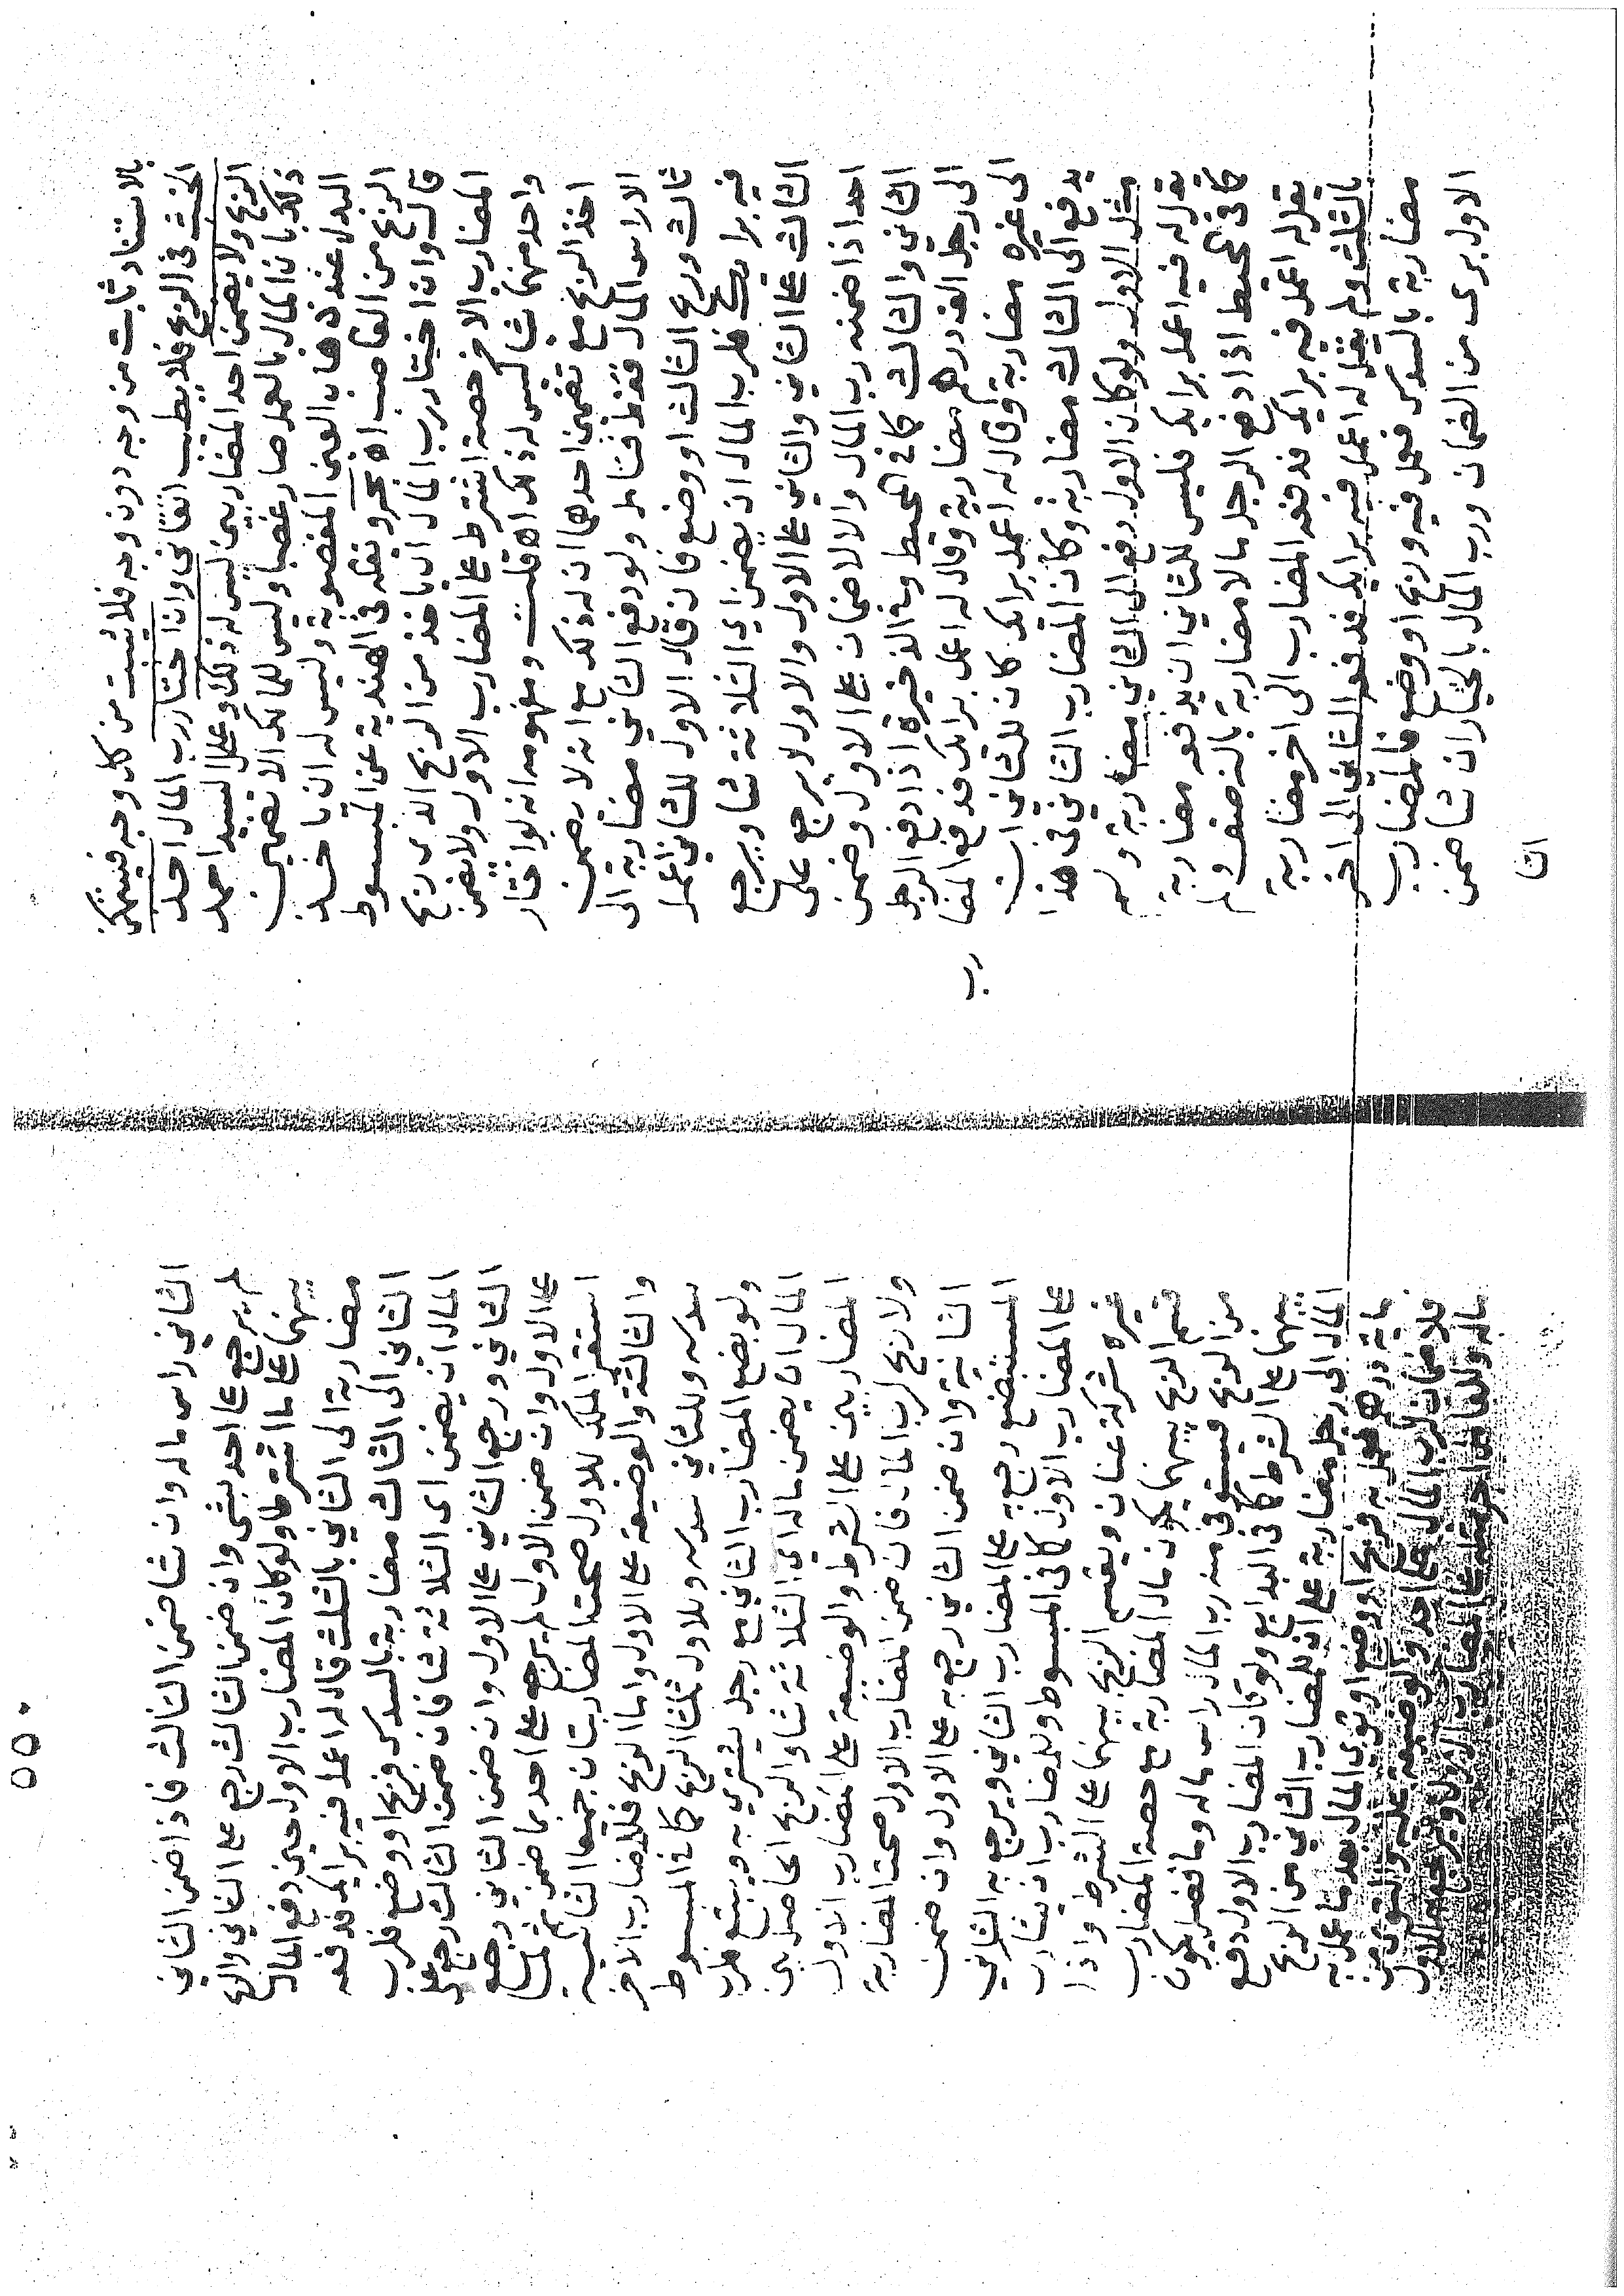 بالاستناد ثابت من وجه دون وجه فلا يثبت من كل وجه فيتمكن
الخبث في الربح فلا يطيب اتقاني وان اختار رب المال اخذ
الربح ولا يضمن احد المضاربين ليس له ذلك وعلل السيد احمد
ذلك بان المال بالعمل صار غصبا وليس للمالك الا تضمين
البدل عند ذهاب العين المغصوبة وليس له ان ياخذ
الربح من الغاصب اه بحر ونقله في الهندية عن المبسوط
قالت وان اختار رب المال ان ياخذ من الربح الذي ربح
المضارب الاخر حصة اشترط على المضارب الاول ولا يضمن
واحد منهما شا ليس له ذلك اه قلت ومفهومه انه لو اختار
اخذ الربح مع تضمين احدهما ان له ذلك مع انه لا رضمن
الا راس المال فقط فتامل ولو دفع الثاني مضاربة الى
ثالث وربح الثالث او وضع فان قال الاول للثاني اعمل
فيه برايك فلرب المال ان يضمن اي الثلاثة شا ويرجع
الثالث على الثاني والثاني على الاول والاول لا يرجع على
احد اذا ضمنه رب المال والا لا ضمان على الاول وضمن
الثاني والثالث كما في المحيط وفي الذخيرة اذا دفع الرجل
الى رجل الف درهم مضاربة وقال له اعمل برايك فدفع المضا
رب
الى غيره مضاربة وقال له اعمل برايك كان للثاني ان
يدفع الى الثالث مضاربة وكان المضارب الثاني في هذا
مثل الاول ولو كان الاول دفع الى الثاني مضاربة ولم
يقل له فيه اعمل برايك فليس للثاني ان يدفعه مضاربة
كما في المحيط اذا دفع الرجل مالا مضاربة بالنصف ولم
يقل له اعمل فيه برايك فدفعه المضارب الى اخر مضاربة
بالثلث ولم يقل له اعمل فيه برايك فدفعه الثاني الى اخر
مضاربة بالسدس فعمل فيه وربح او وضع فالمضارب
الاول برى من الضمان ورب المال بالخيار ان شا ضمن
الثا
٥٥٠
الثاني راس ماله وان شا ضمن الثالث فاذا ضمن الثاني
لم يرجع على احد بشي وان ضمن الثالث رجع على الثاني والربح
بينهما على ما اشترطا ولو كان المضارب الاول حين دفع المال
مضاربة الى الثاني بالثلث قال له اعمل فيه برايك فدفعه
الثاني الى الثالث مضاربة بالسدس فربح او وضع فلرب
المال ان يضمن اي الثلاثة شا فان ضمن الثالث رجع على
الثاني ورجع الثاني على الاول وان ضمن الثاني رجع
على الاول وان ضمن الاول لم يرجع على احد بما ضمن ثم لما
استقر الملك للاول صحت المضاربتان جميعا الثانية
والثالثة والوضيعة على الاول واما الربح فللمضارب الاخر
سدسه وللثاني سدسه وللاول ثلثا الربح كما في المبسوط
ولو بضع المضارب الثاني مع رجل يشتري به ويبيع فلرب
المال ان يضمن ماله اي الثلاثة شا والربح الحاصل بين
المضاربين على الشرط والوضيعة على المضارب الاول
ولا ربح لرب المال فان ضمن المضارب الاول صحت المضاربة
الثانية وان ضمن الثاني رجع به على الاول وان ضمن
المستبضع رجع به على المضارب الثاني ويرجع به الثاني
على المضارب الاول كما في المبسوط وللمضارب ان يشارك
غيره شركة عنان ويقسم الربح بينهما على الشرط واذا
قسم الربح بينهما يكون مال المضاربة مع حصة المضارب
من الربح فيستوفي منه رب المال راس ماله وما فضل يكون
بينهما على الشرط كما في البدايع ولو كان المضارب الاول دفع
المال الى رجل مضاربة على ان للمضارب الثاني من الربح
ماية درهم فعمل به فربح او وضع او توى المال بعد ما عمل به
فلا ضمان لرب المال على احد والوضيعة عليه والتوى من
ماله وللعامل اجر مثله على المضارب الاول ويرجع به الاول